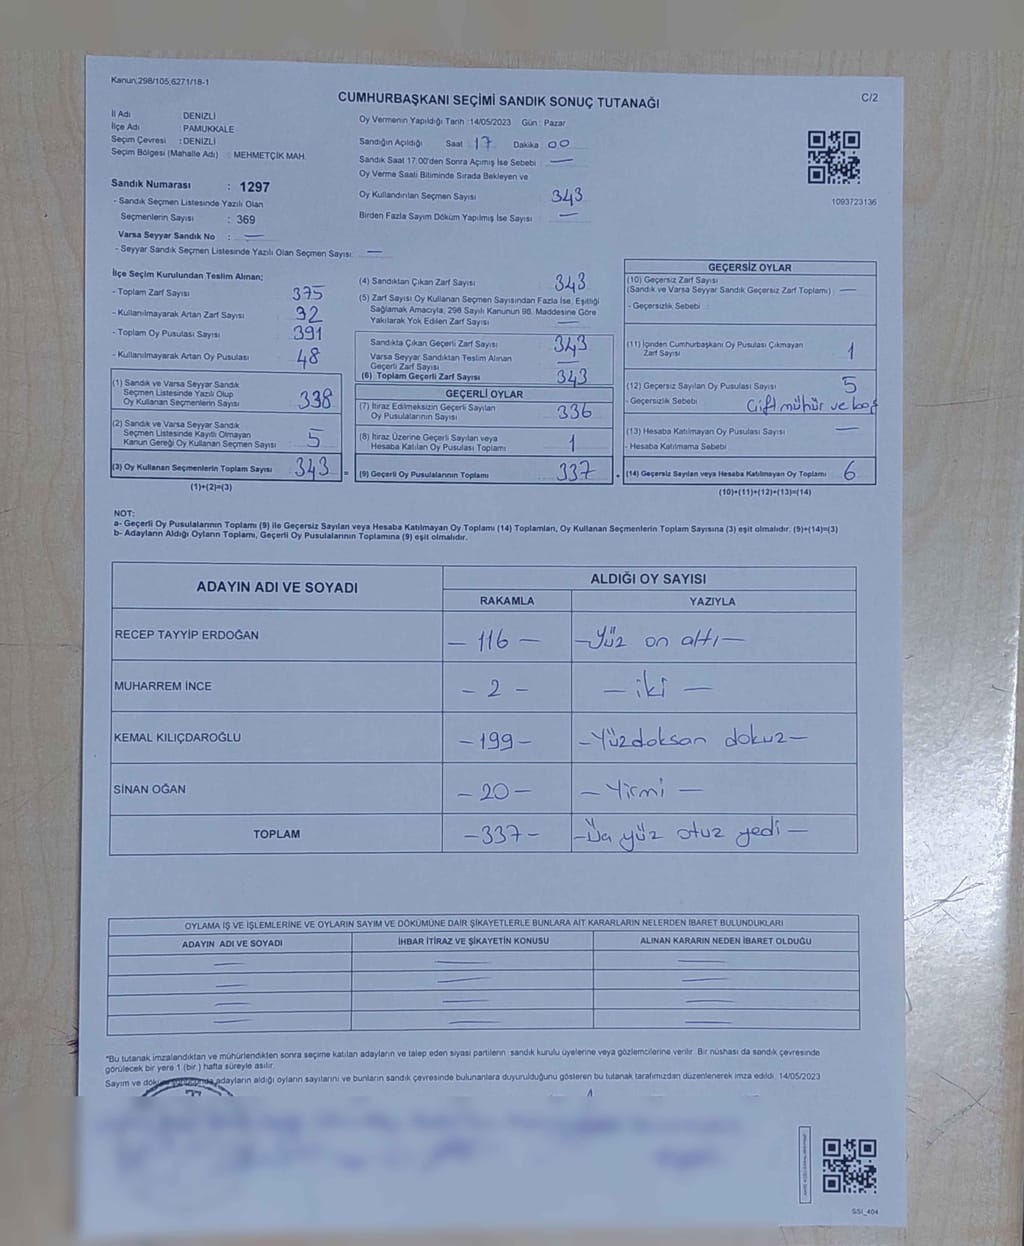 Kanun;298/105;6271/18-1
C/2
CUMHURBAŞKANI SEÇİMİ SANDIK SONUÇ TUTANAĞI
İl Adı DENİZLİ
İlçe Adı : PAMUKKALE
Seçim Çevresi : DENİZLİ
Seçim Bölgesi (Mahalle Adı) : MEHMETÇİK MAH.
Sandık Numarası : 1297
- Sandık Seçmen Listesinde Yazılı Olan
Seçmenlerin Sayısı : 369
Varsa Seyyar Sandık No : —
- Seyyar Sandık Seçmen Listesinde Yazılı Olan Seçmen Sayısı: —
Oy Vermenin Yapıldığı Tarih :14/05/2023 Gün : Pazar
Sandığın Açıldığı Saat 17 Dakika 00
Sandık Saat 17.00'den Sonra Açımış İse Sebebi —
Oy Verme Saati Bitiminde Sırada Bekleyen ve
Oy Kullandırılan Seçmen Sayısı 343
Birden Fazla Sayım Döküm Yapılmış İse Sayısı —
1093723136
İlçe Seçim Kurulundan Teslim Alınan;
- Toplam Zarf Sayısı 375
- Kullanılmayarak Artan Zarf Sayısı 32
- Toplam Oy Pusulası Sayısı 391
- Kullanılmayarak Artan Oy Pusulası 48
(1) Sandık ve Varsa Seyyar Sandık
Seçmen Listesinde Yazılı Olup
Oy Kullanan Seçmenlerin Sayısı 338
(2) Sandık ve Varsa Seyyar Sandık
Seçmen Listesinde Kayıtlı Olmayan
Kanun Gereği Oy Kullanan Seçmen Sayısı 5
(3) Oy Kullanan Seçmenlerin Toplam Sayısı 343 =
(1)+(2)=(3)
(4) Sandıktan Çıkan Zarf Sayısı 343
(5) Zarf Sayısı Oy Kullanan Seçmen Sayısından Fazla İse, Eşitliği
Sağlamak Amacıyla, 298 Sayılı Kanunun 98. Maddesine Göre
Yakılarak Yok Edilen Zarf Sayısı —
Sandıkta Çıkan Geçerli Zarf Sayısı 343
Varsa Seyyar Sandıktan Teslim Alınan
Geçerli Zarf Sayısı —
(6) Toplam Geçerli Zarf Sayısı 343
GEÇERLİ OYLAR
(7) İtiraz Edilmeksizin Geçerli Sayılan
Oy Pusulalarının Sayısı 336
(8) İtiraz Üzerine Geçerli Sayılan veya
Hesaba Katılan Oy Pusulası Toplamı 1
(9) Geçerli Oy Pusulalarının Toplamı 337 +
GEÇERSİZ OYLAR
(10) Geçersiz Zarf Sayısı
(Sandık ve Varsa Seyyar Sandık Geçersiz Zarf Toplamı) : —
- Geçersizlik Sebebi :
(11) İçinden Cumhurbaşkanı Oy Pusulası Çıkmayan
Zarf Sayısı 1
(12) Geçersiz Sayılan Oy Pusulası Sayısı 5
- Geçersizlik Sebebi Çift mühür ve boş
(13) Hesaba Katılmayan Oy Pusulası Sayısı —
- Hesaba Katılmama Sebebi
(14) Geçersiz Sayılan veya Hesaba Katılmayan Oy Toplamı 6
(10)+(11)+(12)+(13)=(14)
NOT:
a- Geçerli Oy Pusulalarının Toplamı (9) ile Geçersiz Sayılan veya Hesaba Katılmayan Oy Toplamı (14) Toplamları, Oy Kullanan Seçmenlerin Toplam Sayısına (3) eşit olmalıdır. (9)+(14)=(3)
b- Adayların Aldığı Oyların Toplamı, Geçerli Oy Pusulalarının Toplamına (9) eşit olmalıdır.
ADAYIN ADI VE SOYADI ALDIĞI OY SAYISI
RAKAMLA YAZIYLA
RECEP TAYYİP ERDOĞAN — 116 — — Yüz on altı —
MUHARREM İNCE — 2 — — iki —
KEMAL KILIÇDAROĞLU — 199 — — Yüzdoksan dokuz —
SİNAN OĞAN — 20 — — Yirmi —
TOPLAM — 337 — — Üç yüz otuz yedi —
OYLAMA İŞ VE İŞLEMLERİNE VE OYLARIN SAYIM VE DÖKÜMÜNE DAİR ŞİKAYETLERLE BUNLARA AİT KARARLARIN NELERDEN İBARET BULUNDUKLARI
ADAYIN ADI VE SOYADI İHBAR İTİRAZ VE ŞİKAYETİN KONUSU ALINAN KARARIN NEDEN İBARET OLDUĞU
— — —
— — —
— — —
— — —
"Bu tutanak imzalandıktan ve mühürlendikten sonra seçime katılan adayların ve talep eden siyasi partilerin sandık kurulu üyelerine veya gözlemcilerine verilir. Bir nüshası da sandık çevresinde
görülecek bir yere 1 (bir ) hafta süreyle asılır.
Sayım ve döküm sonucunda adayların aldığı oyların sayılarını ve bunların sandık çevresinde bulunanlara duyurulduğunu gösteren bu tutanak tarafımızdan düzenlenerek imza edildi. 14/05/2023
SSI_404